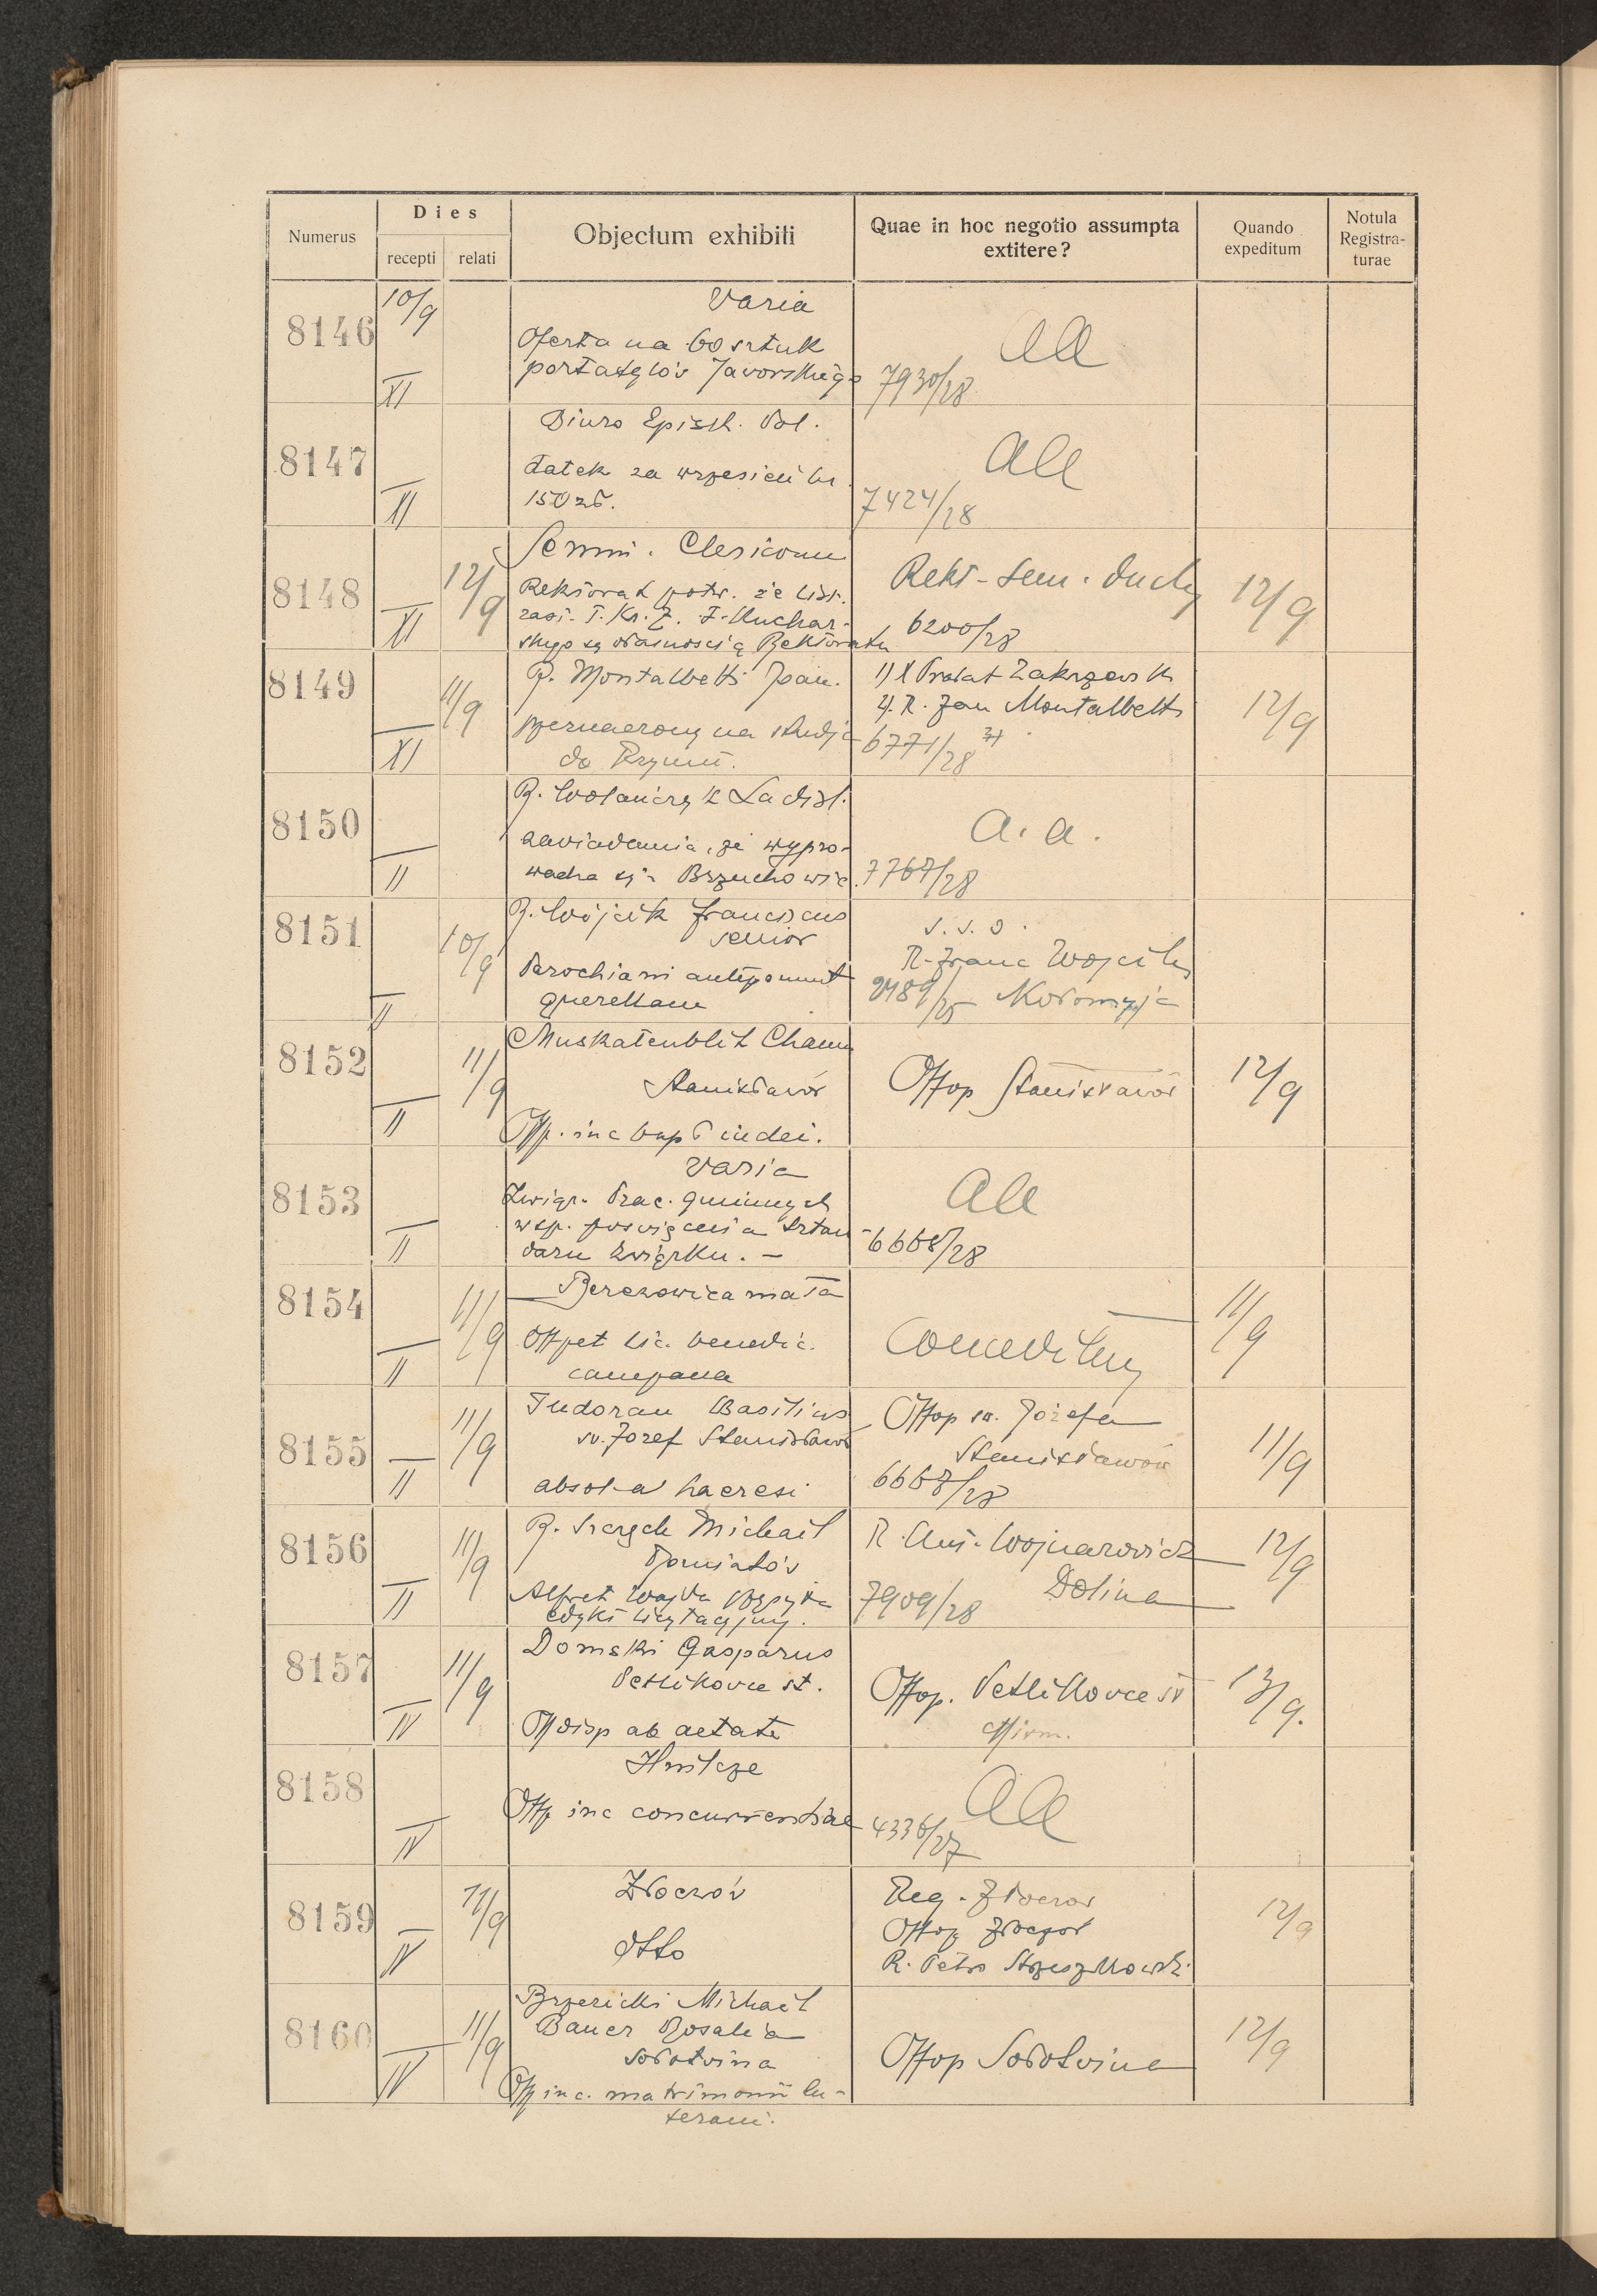 Numerus
Dies
recepti
relati
Objectum exhibiti
Quae in hoc negotio assumpta
extitere?
Quando
expeditum
Notula
Registra-
turae
8146
10/9
XI
Varia
Oferta na 60 sztuk
portatylów Javorskiego
aa
7930/28
8147
II
Biuro Episk. Pol.
datek za wrzesień br.
150 zł.
aa
7424/28
8148
XI
12/9
Semin. Clericorum
Rektorat potw. że
Rektoratu
Rekt-Sem. duch
6200/28
12/9
8149
XI
11/9
R. Montalbetti Joan.
przeznaczony na studja
do Rzymu.
1) X Prałat Zakrzewski
2) R. Jan Montalbetti
6771/28
12/9
8150
II
R. Wołańczyk Ladisl.
zawiadamia, że wypro-
wadza się z Brzuchowic.
a. a.
7767/28
8151
II
10/9
R. Wójcik Franciscus
senior
Parochiani anteponunt
querellam
s. s. o.
R. Franc Wojcik
2489/25 Kołomyja
8152
II
11/9
Muskatenblit Cham
Stanisławów
Offp. in c bapt iudei.
Offop Stanisławów
12/9
8153
II
Varia
Związ. Prac. gminnych
wsp. poświęcenia sztan-
daru Związku. —
aa
6668/28
8154
II
11/9
Berezowica mała
Off pet lic. benedic.
campana
Conceditur
11/9
8155
II
11/9
Tudoran Basilius
sv. Jozef Stanisławów
absol-a haeresi
Offop sw. Józefa
Stanisławów
6668/28
11/9
8156
II
11/9
R. Michael
Perniatów
Alfred Wajda
edykt licytacyjny.
R. Ant. Wojnarowicz
Dolina
7909/28
12/9
8157
IV
11/9
Domski Gasparus
Petlikovce st.
Off disp ab aetate
Offop. Petlikovce st
affirm.
13/9.
8158
IV
Hnilcze
Offp in c concurrentiae
aa
4336/27
8159
IV
11/9
Złoczów
Otto
Reg. Złoczow
Offop Złoczow
R. Petro
12/9
8160
IV
11/9
Brzezicki Michael
Bauer Rosalia
Sołotvina
Offp in c. matrimonii lu-
terani.
Offop Sołotvina
12/9